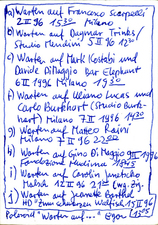 a) Warten auf Francesco Scarpelli
2.II 96 1530 Milano
b) Warten auf Dagmar Trinks/
Studio Mendini 5.II 96 1230
c) Warten auf Mark Kostabi und
Davide DiMaggio Bar Elephant
6.II 1996 Milano 1930
d) Warten auf Uliano Lucas und
Carlo Burkhart (Studio Burk-
hart) Milano 7.II 1996 1430
g) Warten auf Matteo
Milano 7.II 96 2200
h) Warten auf Gino Di Maggio 9.II 1996
Fondazione Mudima 1845
i) Warten auf Carolin
12.II 96
j) Warten auf Jeanette
HD "Zum schwarzen Walfisch" 15.II 96
"Warten auf..." Egon